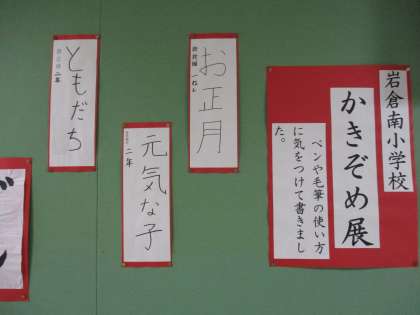 岩倉南小学校
かきぞめ展
ペンや毛筆の使い方
に気をつけて書きまし
た。
お正月
元気な子
二年
ともだち
二年